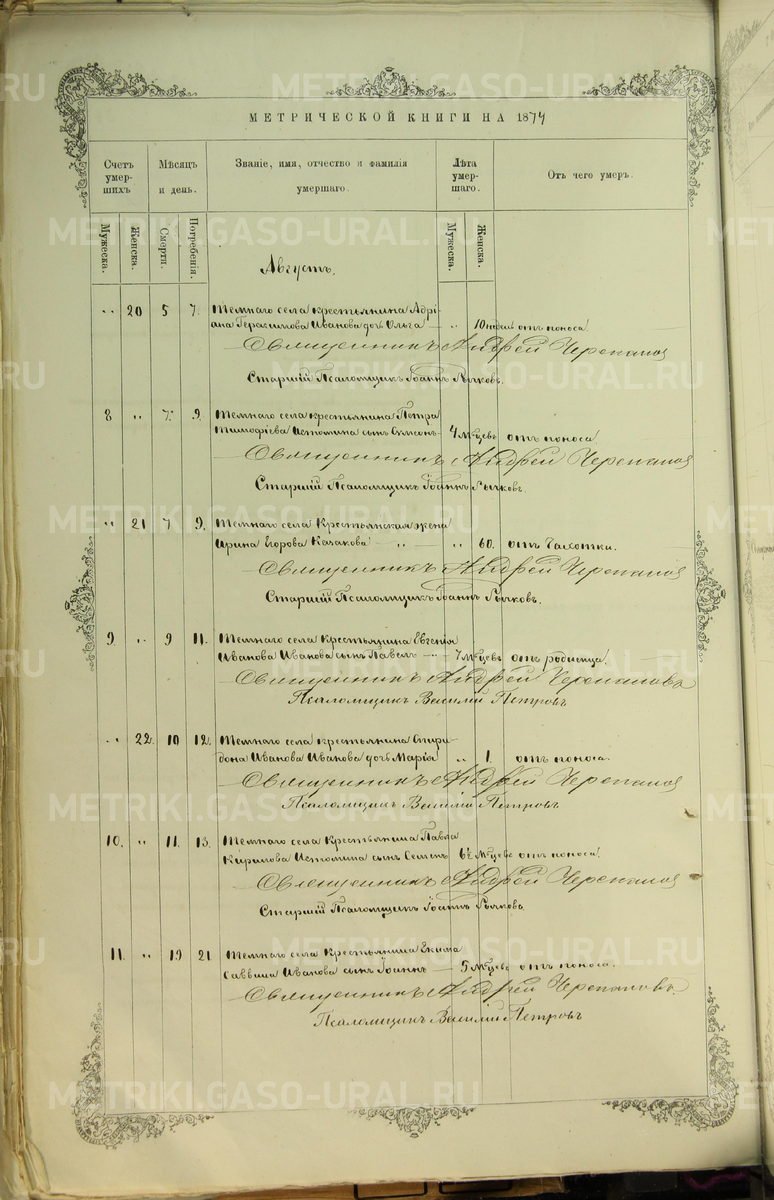 МЕТРИЧЕСКОЙ КНИГИ НА 1874
Счетъ умершихъ Мѣсяцъ и день. Званіе, имя, отчество и фамилія умершаго. Лѣта умершаго. Отъ чего умеръ.
Мужеска. Женска. Смерти. Погребенія. Мужеска. Женска.
Августъ.
" 20 5 7. Темнаго села крестьянина Адрі-
ана Герасимова Иванова дочь Ольга — " 10 недѣль отъ поноса.
Священникъ Андрей Черепановъ
Старшій Псаломщикъ Іоаннъ Рычковъ.
8 " 7. 9. Темнаго села крестьянина Петра
Тимофіева Истомина сынъ Симеонъ 4 мѣсцевъ отъ поноса
Священникъ Андрей Черепановъ
Старшій Псаломщикъ Іоаннъ Рычковъ
" 21 7 9. Темнаго села Крестьянская жена
Ирина Егорова Казакова — " — " 60. отъ Чахотки.
Священникъ Андрей Черепановъ
Старшій Псаломщикъ Іоаннъ Рычковъ.
9. " 9 11. Темнаго села Крестьянина Евгенія
Иванова Иванова сынъ Павелъ — 7 мѣсцевъ отъ родимца.
Священникъ Андрей Черепановъ
Псаломщикъ Василій Петровъ
" 22. 10 12. Темнаго села крестьянина Спири-
дона Иванова Иванова дочь Марія " 1. отъ поноса.
Священникъ Андрей Черепановъ
Псаломщикъ Василій Петровъ
10. " 11. 13. Темнаго села Крестьянина Павла
Кирилова Истомина сынъ Семенъ 6 мѣсцевъ отъ поноса.
Священникъ Андрей Черепановъ
Старшій Псаломщикъ Іоаннъ Рычковъ
11. " 19 21 Темнаго села Крестьянина Екима
Саввина Иванова сынъ Іоаннъ — 5 мѣсцевъ отъ поноса.
Священникъ Андрей Черепановъ.
Псаломщикъ Василій Петровъ
METRIKI.GASO-URAL.RU